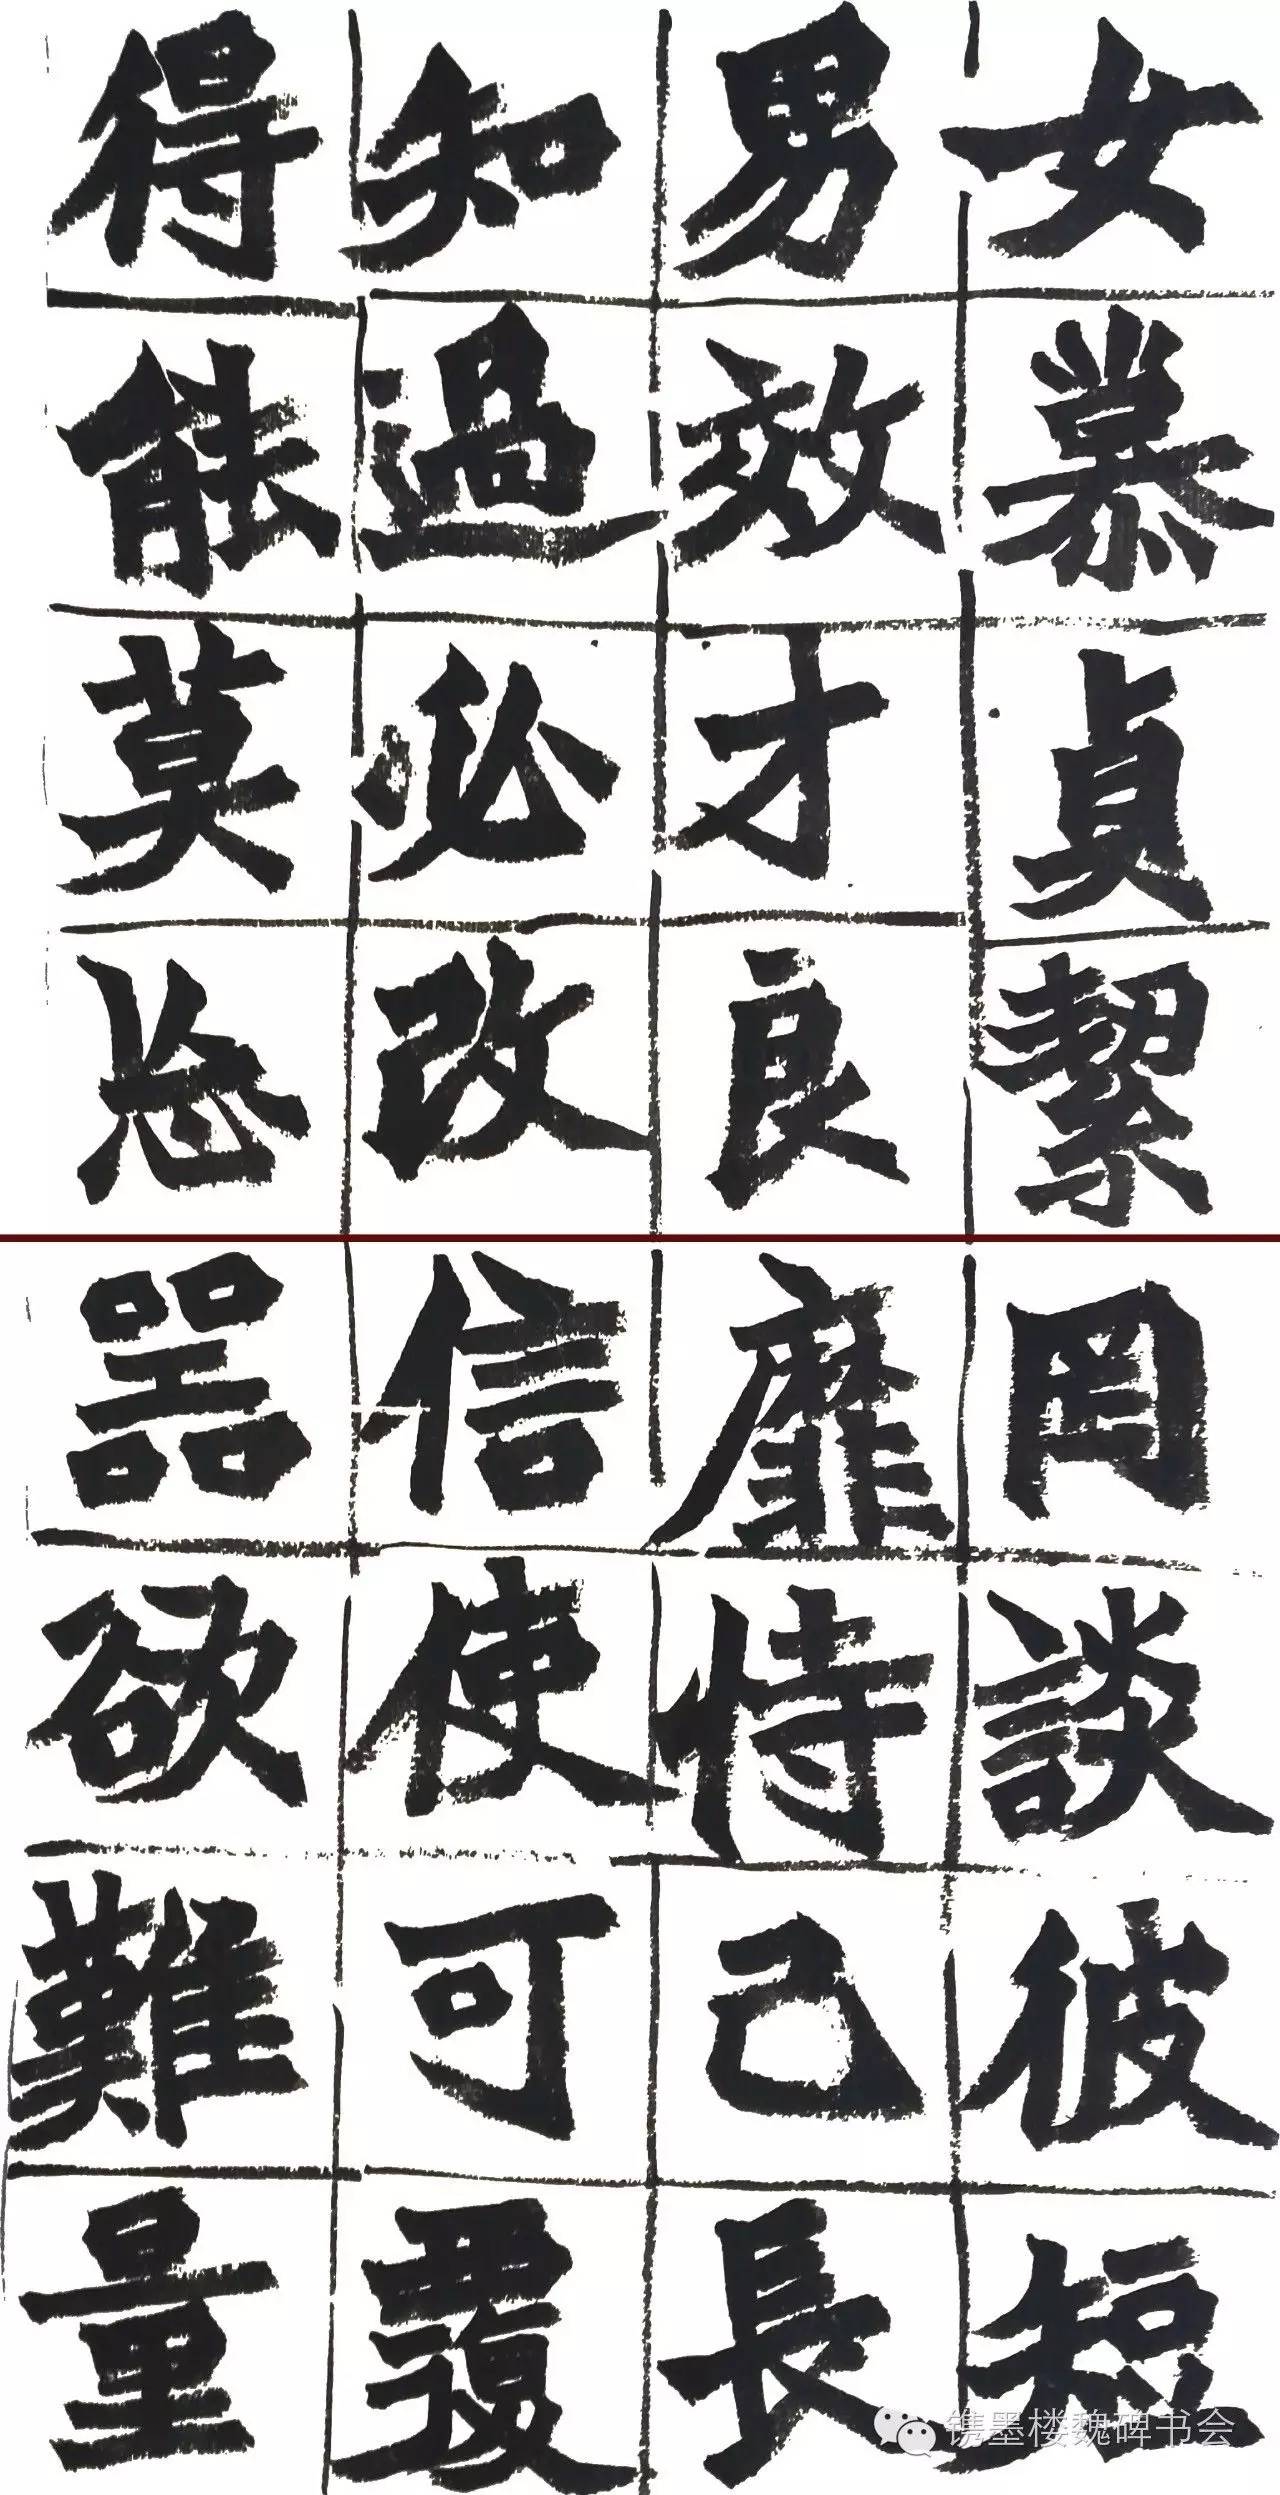 女慕貞絜
男效才良
知過必改
得能莫忘
罔談彼短
靡恃己長
信使可覆
器欲難量
镌墨楼魏碑书会